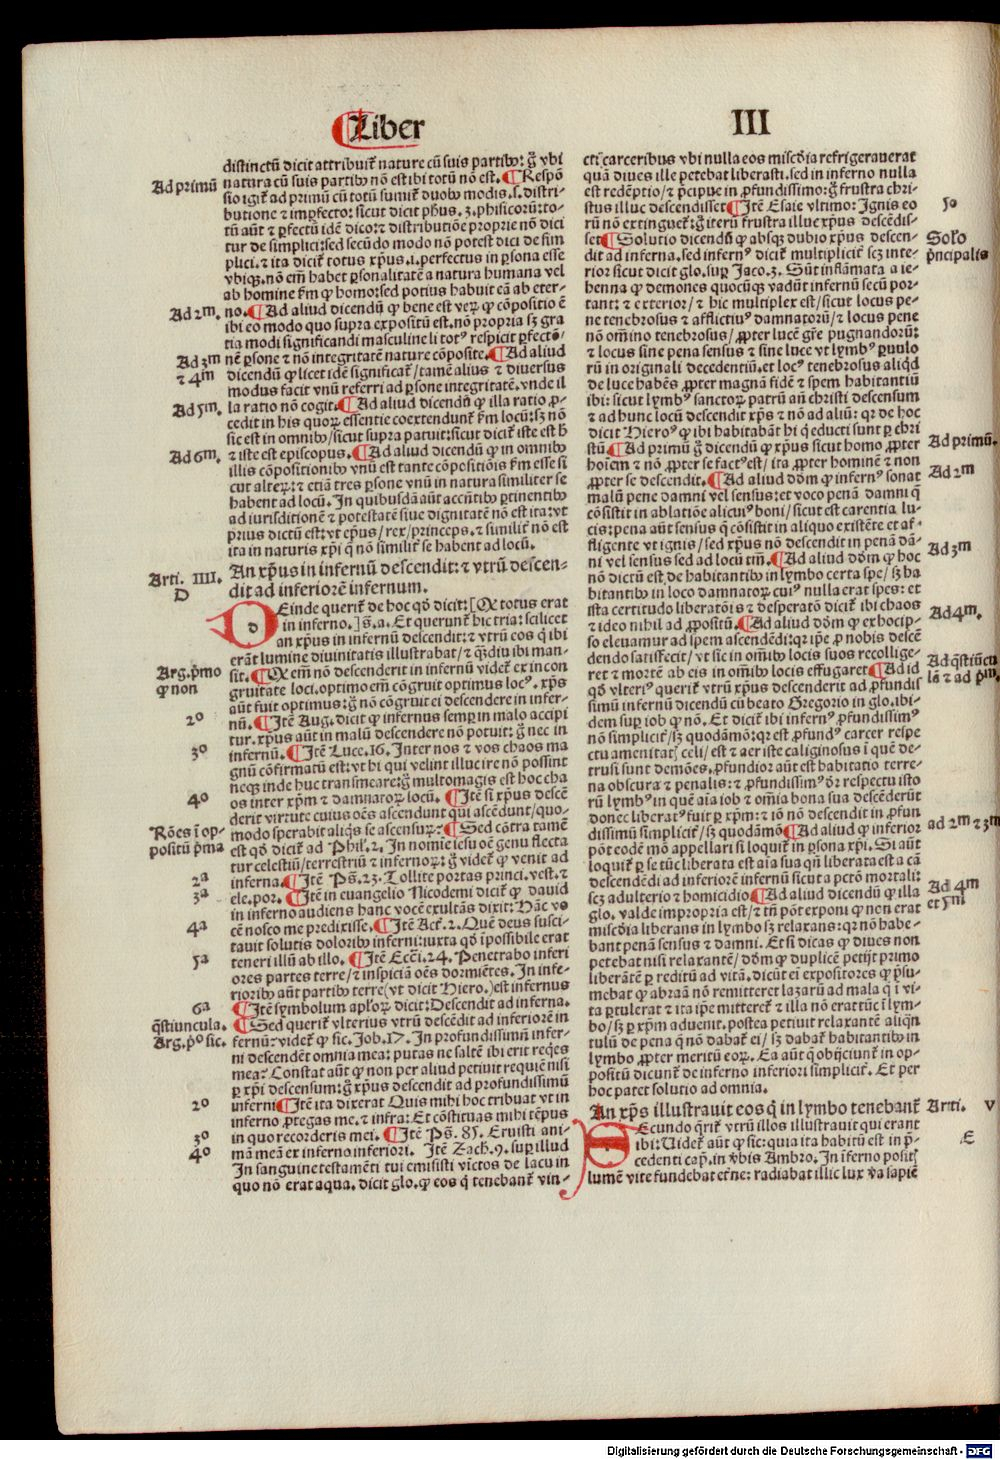 Liber
III
distinctū dicit attribuit᷑ nature cū suis partibꝰ: g̊ vbi
Ad primū
natura cū suis partibꝰ nō est ibi totū nō est. ¶ Respō
sio igit᷑ ad primū cū totū sumit᷑ duobꝰ modis. s. distri-
butione ⁊ imp̱fecto: sicut dicit ph̄us. 3. phisicorū: to-
tū aūt ⁊ p̱fectū idē dico: ⁊ distributiōe proprie nō dici
tur de simplici: sed secūdo modo nō potest dici de sim
plici. ⁊ ita dicit᷑ totus xp̄us .i. perfectus in p̱sona esse
vbiqꝫ. nō em̄ habet p̱sonalitatē a natura humana vel
ab homine s̄m ꝙ homo: sed potius habuit eā ab eter-
Ad 2m.
no. ¶ Ad aliud dicendū ꝙ bene est veꝝ ꝙ cōpositio ē
ibi eo modo quo supra expositū est. nō propria sꝫ gra
tia modi significandi masculine li totꝰ respicit p̱fectō-
Ad 3m
⁊ 4m
nē p̱sone ⁊ nō integritatē nature cōposite. ¶ Ad aliud
dicendū ꝙ licet idē significat᷑/ tamē alius ⁊ diuersus
modus facit vnū referri ad p̱sone integritatē. vnde il
Ad 5m.
la ratio nō cogit. ¶ Ad aliud dicendū ꝙ illa ratio ꝓ-
cedit in his quoꝝ essentie coextendunt᷑ s̄m locū: sꝫ nō
sic est in omnibꝰ/ sicut supra patuit: sicut dicit᷑ iste est h̄
Ad 6m.
⁊ iste est episcopus. ¶ Ad aliud dicendū ꝙ in omnibꝰ
illis cōpositionibꝰ vnū est tante cōpositiōis s̄m esse si
cut alteꝝ: ⁊ etiā tres p̱sone vnū in natura similiter se
habent ad locū. In quibusdā aūt accn̄tibꝰ p̱tinentibꝰ
ad iurisdictionē ⁊ potestatē siue dignitatē nō est ita: vt
prius dictū est: vt ep̄us/ rex/ princeps. ⁊ similit᷑ nō est
ita in naturis xp̄i q̄ nō similit᷑ se habent ad locū.
Arti. IIII.
D
An xp̄us in infernū descendit: ⁊ vtrū descen-
dit ad inferiorē infernum.
DEinde querit᷑ de hoc qd̄ dicit: [Qz totus erat
in inferno.] s̄. a. Et querunt᷑ hic tria: scilicet
an xp̄us in infernū descendit: ⁊ vtrū eos q̄ ibi
erāt lumine diuinitatis illustrabat/ ⁊ q̄ȝdiu ibi man-
Arg. p̄mo
ꝙ non
sit. ¶ Qz em̄ nō descenderit in infernū videt᷑ ex incon
gruitate loci. optimo em̄ cōgruit optimus locꝰ. xp̄s
aūt fuit optimus: g̊ nō cōgruit ei descendere in infer-
2o
nū. ¶ Itē Aug. dicit ꝙ infernus semp̱ in malo accipi
tur. xp̄us aūt in malū descendere nō potuit: g̊ nec in
3o
infernū. ¶ Itē Luce. 16. Inter nos ⁊ vos chaos ma
gnū cōfirmatū est: vt hi qui velint illuc ire nō possint
neqꝫ inde huc transmeare: g̊ multomagis est hoc cha
4o
os inter xp̄m ⁊ damnatoꝝ locū. ¶ Itē si xp̄us descē
derit virtute cuius oēs ascendunt qui ascendūt/ quo-
Rōes ī op-
positū p̄ma
modo sperabit aliq̄s se ascensuꝝ? ¶ Sed cōtra tamē
est qd̄ dicit᷑ ad Phil̓. 2. In nomīe iesu oē genu flecta
tur celestiū/ terrestriū ⁊ infernoꝝ: g̊ videt᷑ ꝙ venit ad
2a
inferna. ¶ Itē Ps̄. 23. Tollite portas princi. vest. ⁊
3a
ele. por. ¶ Itē in euangelio Nicodemi dicit᷑ ꝙ dauid
in inferno audiens hanc vocē exultās dixit: Hāc vo
4a
cē nosco me predixisse. ¶ Itē Act᷑. 2. Quē deus susci-
tauit solutis doloribꝰ inferni: iuxta qd̄ īpossibile erat
5a
teneri illū ab illo. ¶ Itē Ecc̄i. 24. Penetrabo inferi
ores partes terre/ ⁊ inspiciā oēs dormiētes. In infe-
rioribꝰ aūt partibꝰ terre (vt dicit Hiero.) est infernus
6a
¶ Itē symbolum apl̓oꝝ dicit: Descendit ad inferna.
q̄stiuncula.
¶ Sed querit᷑ vlterius vtrū descēdit ad inferiorē in
Arg. p̊ sic.
fernū: videt᷑ ꝙ sic. Job. 17. In profundissimū infer-
ni descendēt omnia mea: putas ne saltē ibi erit reqͥes
mea? Constat aūt ꝙ non per aliud petiuit requiē nisi
p̱ xp̄i descensum: g̊ xp̄us descendit ad profundissimū
2o
inferni. ¶ Itē ita dixerat Quis mihi hoc tribuat vt in
inferno ꝓtegas me. ⁊ infra: Et cōstituas mihi tēpus
3o
in quo recorderis mei. ¶ Itē Ps̄. 85. Eruisti ani-
4o
mā meā ex inferno inferiori. Itē Zach. 9. sup̱ illud
In sanguine testamēti tui emisisti vīctos de lacu in
quo nō erat aqua. dicit glo. ꝙ eos q̄ tenebant᷑ vin-
cti carceribus vbi nulla eos mis̄cdia refrigerauerat
quā diues ille petebat liberasti. sed in inferno nulla
est redēptio/ ⁊ p̄cipue in ꝓfundissimo: g̊ frustra chri-
5o
stus illuc descendisset ¶ Itē Esaie vltimo: Ignis eo
rū nō extinguet᷑: g̊ iterū frustra illuc xp̄us descēdis-
Solo
p̄ncipalis
set ¶ Solutio dicendū ꝙ absqꝫ dubio xp̄us descen-
dit ad inferna. sed infernꝰ dicit᷑ multiplicit᷑ scꝫ inte-
rior sicut dicit glo. sup̱ Jaco. 3. Sūt inflāmata a ie-
henna ꝙ demones quocūqꝫ vadūt infernū secū por-
tant: ⁊ exterior/ ⁊ hic multiplex est/ sicut locus pe-
ne tenebrosus ⁊ afflictiuꝰ damnatorū/ ⁊ locus pene
nō om̄ino tenebrosus/ ꝓpter lucē gr̄e pugnandorū:
⁊ locus sine pena sensus ⁊ sine luce vt lymbꝰ paruulo
rū in originali decedentiū. et locꝰ tenebrosus aliqͥd
de luce habēs ꝓpter magnā fidē ⁊ spem habitantiū
ibi: sicut lymbꝰ sanctoꝝ patrū an̄ christi descensum
⁊ ad hunc locū descendit xp̄s ⁊ nō ad aliū: qr de hoc
dicit Hieroꝰ ꝙ ibi habitabāt hi q̄ educti sunt p̱ chri
Ad primū.
stū. ¶ Ad primū g̊ dicendū ꝙ xp̄us sicut homo ꝓpter
hoīem ⁊ nō ꝓpter se factꝰ est/ ita ꝓpter hominē ⁊ non
Ad 2m
ꝓpter se descendit. ¶ Ad aliud dōm ꝙ infernꝰ sonat
malū pene damni vel sensus: et voco penā damni q̄
cōsistit in ablatiōe alicuiꝰ boni/ sicut est carentia lu-
cis: pena aūt sensus q̄ cōsistit in aliquo existēte et af-
fligente vt ignis/ sed xp̄us nō descendit in penā dā-
Ad 3m
ni vel sensus sed ad locū tm̄. ¶ Ad aliud dōm ꝙ hoc
nō dictū est de habitantibꝰ in lymbo certa spe/ sꝫ ha
bitantibꝰ in loco damnatoꝝ cuiꝰ nulla erat spes: et
ista certitudo liberatōis ⁊ desperatō dicit᷑ ibi chaos
Ad 4m.
⁊ ideo nihil ad ꝓpositū. ¶ Ad aliud dōm ꝙ ex hoc ip-
so eleuamur ad spem ascendēdi: qr ip̄e ꝓ nobis descē
dendo satisfecit/ vt sic in om̄ibꝰ locis suos recollige-
Ad q̄stiūcu
lā ⁊ ad p̄m.
ret ⁊ mortē ab eis in om̄ibꝰ locis effugaret ¶ Ad id
qd̄ vlteriꝰ querit᷑ vtrū xp̄us descenderit ad ꝓfundis
simū infernū dicendū cū beato Gregorio in glo. ibi-
dem sup̱ iob ꝙ nō. Et dicit᷑ ibi infernꝰ ꝓfundissimꝰ
nō simplicit᷑/ sꝫ quodāmō: qr est ꝓfundꝰ carcer respe
ctu amenitatꝭ celi/ est ⁊ aer iste caliginosus ī quē de-
trusi sunt demōes. ꝓfundior aūt est habitatio terre-
na obscura ⁊ penalis: ⁊ ꝓfundissimꝰ d̓r respectu isto
rū lymbꝰ in quē aīa iob ⁊ om̄ia bona sua descēderūt
donec liberatꝰ fuit p̱ xp̄m: ⁊ iō nō descendit in ꝓfun
ad 2m ⁊ 3m
dissimū simplicit᷑/ sꝫ quodāmō ¶ Ad aliud ꝙ inferior
pōt eodē mō appellari si loquit᷑ in p̱sona xp̄i. Si aūt
loquit᷑ p̱ se tūc liberata est aīa sua qn̄ liberata est a cā
descendēdi ad inferiorē infernū sicut a pctō mortali:
Ad 4m
et 5m
scꝫ adulterio ⁊ homicidio. ¶ Ad aliud dicendū ꝙ illa
glo. valde impropria est/ ⁊ tn̄ pōt exponi ꝙ non erat
mis̄cdia liberans in lymbo sꝫ relaxans: qr nō habe-
bant penā sensus ⁊ damni. Et si dicas ꝙ diues non
petebat nisi relaxantē/ dōm ꝙ duplicē petijt primo
liberātē p̱ reditū ad vitā. dicūt em̄ expositores ꝙ p̄su-
mebat ꝙ abraā nō remitteret lazarū ad mala q̄ i vi-
ta p̱tulerat ⁊ ita ip̄e mitteret᷑ ⁊ illa nō erat tūc ī lym-
bo/ sꝫ p̱ xp̄m aduenit. postea petiuit relaxantē aliqn̄
tulū de pena q̄ nō dabat᷑ ei/ sꝫ dabat᷑ habitantibꝰ in
lymbo ꝓpter meritū eoꝝ. Ea aūt q̄ obijciunt᷑ in op-
positū dicunt᷑ de inferno inferiori simplicit᷑. Et per
hoc patet solutio ad omnia.
Arti. V
An xp̄us illustrauit eos q̄ in lymbo tenebant᷑
E
SEcundo q̄rit᷑ vtrū illos illustrauit qui erant
ibi: Videt᷑ aūt ꝙ sic: quia ita habitū est in p̄-
cedenti cap̄. in v̄bis Ambro. In īferno positꝭ
lumē vite fundebat et̄ne: radiabat illic lux v̓a sapiē
Digitalisierung gefördert durch die Deutsche Forschungsgemeinschaft - DFG